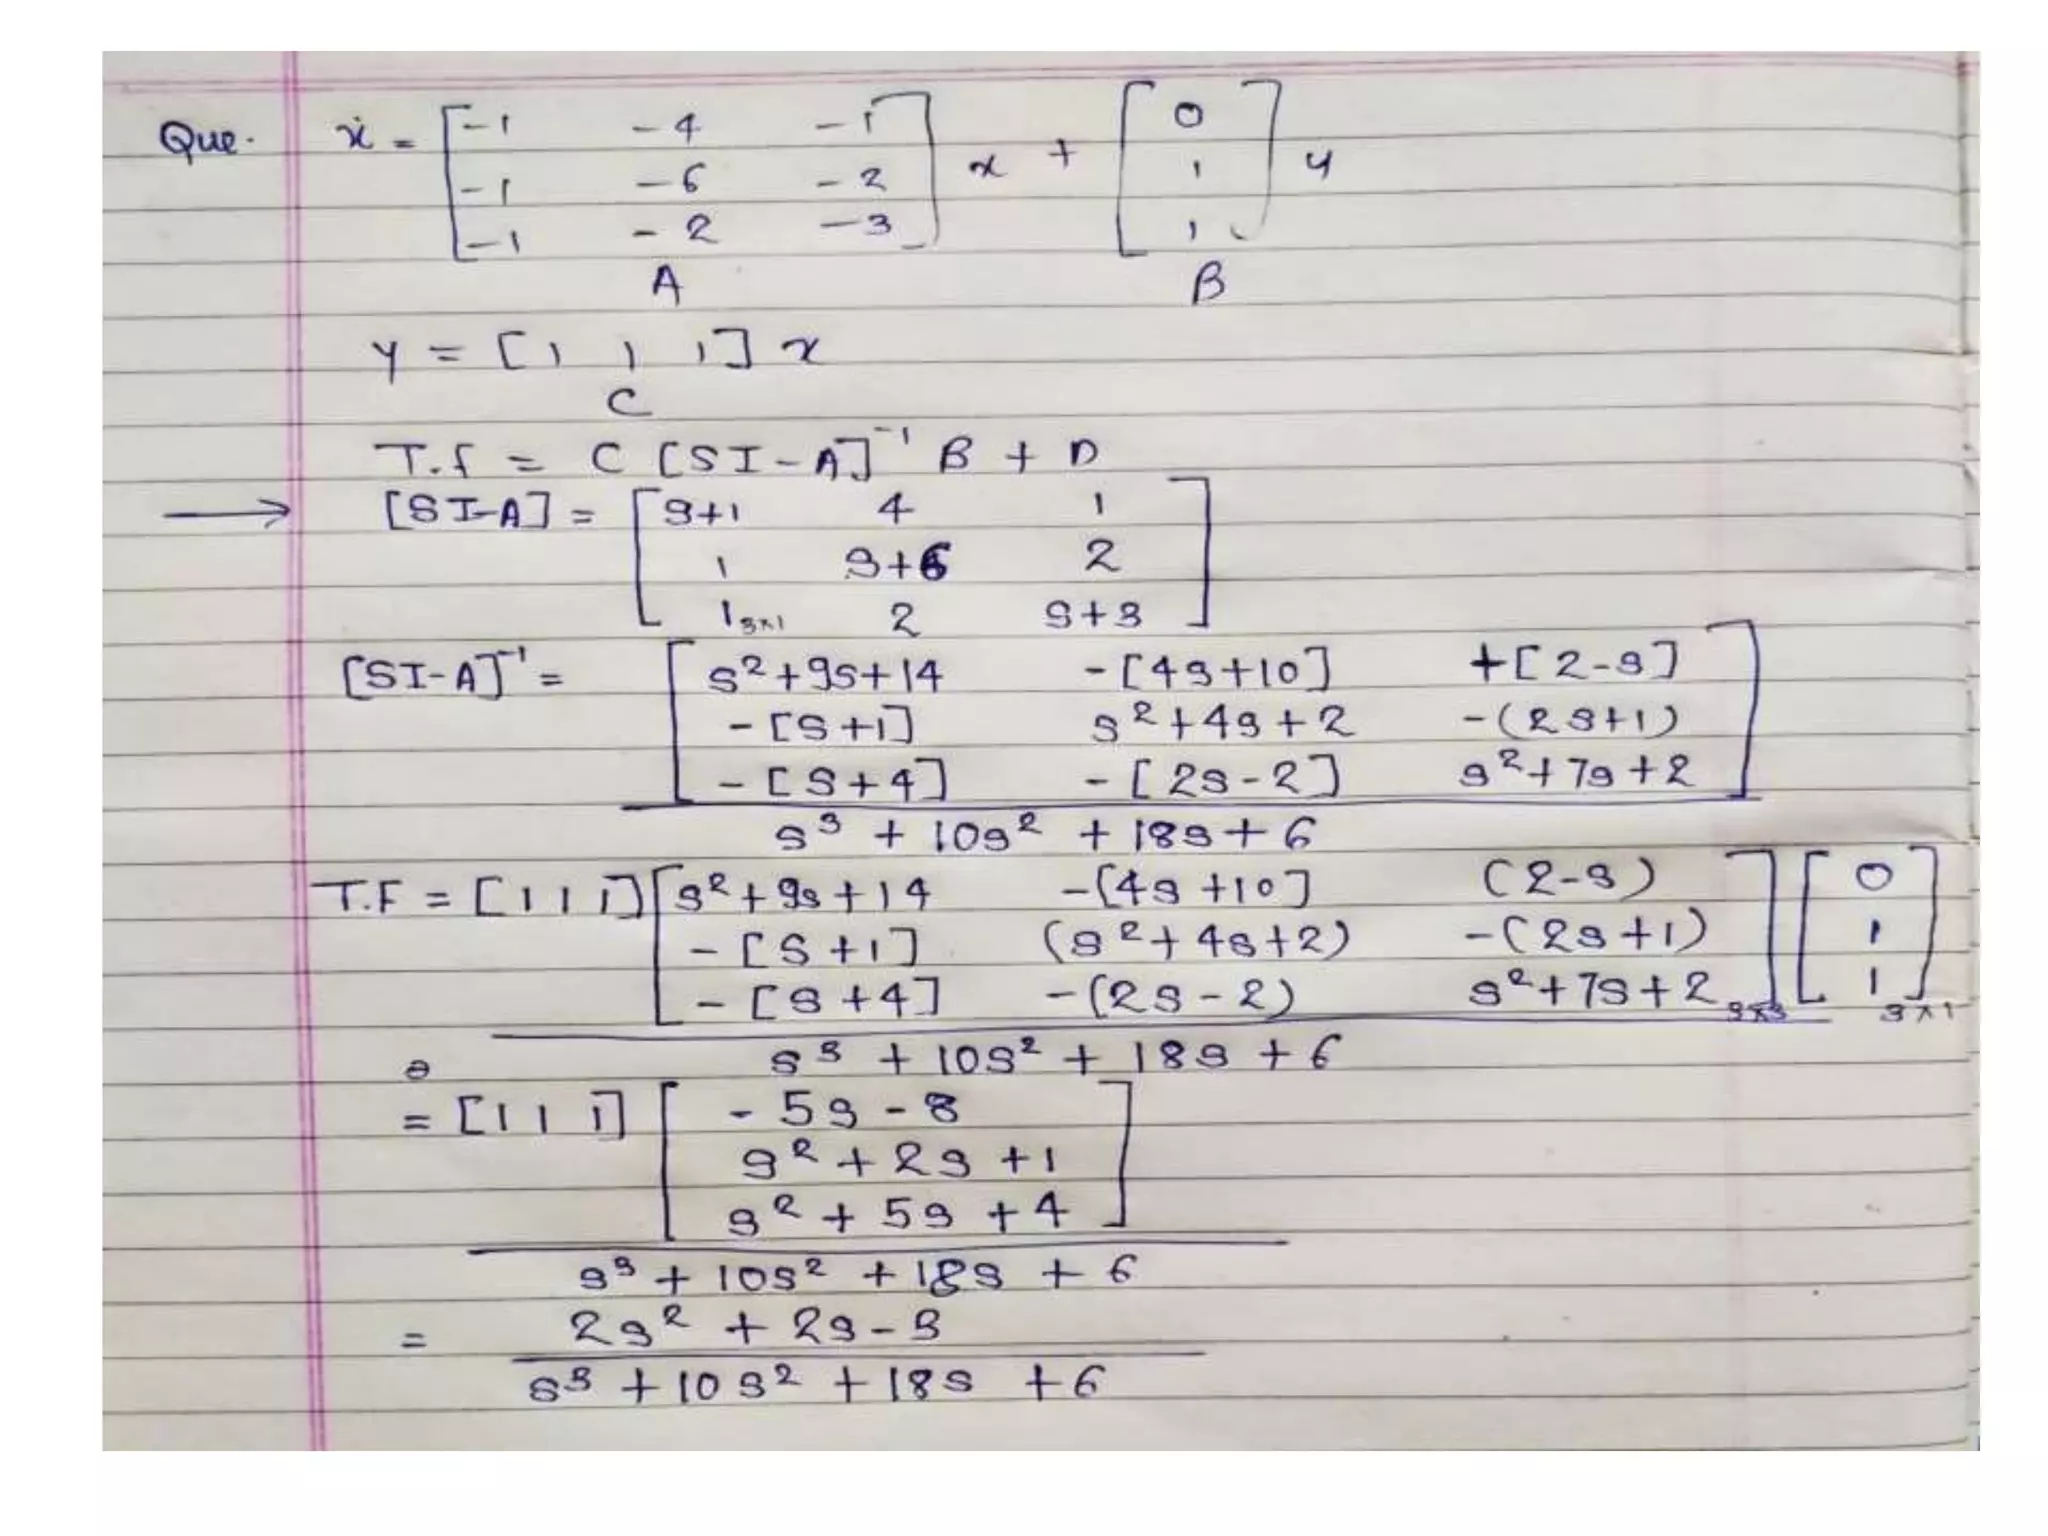 Que. ẋ = [ -1 -4 -1 ; -1 -6 -2 ; -1 -2 -3 ] x + [ 0 ; 1 ; 1 ] u
A B
y = [ 1 1 1 ] x
C
T.f = C [SI-A]⁻¹ B + D
→ [SI-A] = [ s+1 4 1 ; 1 s+6 2 ; 1 3×1 2 s+3 ]
[SI-A]⁻¹ = [ s²+9s+14 -[4s+10] +[2-s] ; -[s+1] s²+4s+2 -(2s+1) ; -[s+4] -[2s-2] s²+7s+2 ]
s³ + 10s² + 18s + 6
T.F = [ 1 1 1 ] [ s²+9s+14 -[4s+10] (2-s) ; -[s+1] (s²+4s+2) -(2s+1) ; -[s+4] -(2s-2) s²+7s+2 ] 3×3 [ 0 ; 1 ; 1 ] 3×1
s³ + 10s² + 18s + 6
= [ 1 1 1 ] [ -5s-8 ; s²+2s+1 ; s²+5s+4 ]
s³ + 10s² + 18s + 6
= 2s² + 2s - 3
s³ + 10s² + 18s + 6